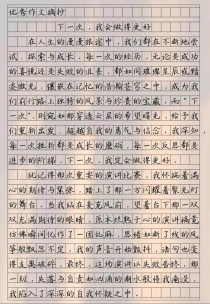 优秀作文摘抄
下一次，我会做得更好
在人生的漫漫旅途中，我们都在不断地尝
试、探索与成长。每一次的经历，无论是成功
的喜悦还是失败的沮丧，都如同璀璨星辰或暗
淡微光，镶嵌在记忆的浩瀚苍穹之中，成为我
们前行路上独特的风景与珍贵的宝藏。而“下
一次”，则宛如那穿透云层的希望曙光，给予我
们重新出发、超越自我的勇气与信念。我深知
每一次挫折都是成长的磨砺，每一次反思都是
进步的阶梯，下一次，我定会做得更好。
记得那次重要的演讲比赛，我怀揣着满
心的期待与紧张，踏上了那一方闪耀着聚光灯
的舞台。当我站在麦克风前，望着台下那一双
双充满期待的眼睛，原本烂熟于心的演讲稿竟
仿佛瞬间化作了一团乱麻，思绪如断了线的风
筝般飘忽不定。我的声音开始颤抖，语句也变
得支离破碎。最终，这场演讲以失败告终。那一
刻，失落与自责如汹涌的潮水般将我淹没，
我陷入了深深的自我怀疑之中。